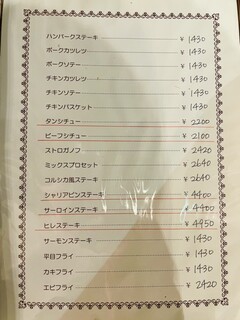 ハンバークステーキ ¥ 1430
ポークカツレツ ¥ 1430
ポークソテー ¥ 1430
チキンカツレツ ¥ 1430
チキンソテー ¥ 1430
チキンバスケット ¥ 1430
タンシチュー ¥ 2200
ビーフシチュー ¥ 2100
ストロガノフ ¥ 2420
ミックスプロセット ¥ 2640
コルシカ風ステーキ ¥ 2640
シャリアピンステーキ ¥ 4400
サーロインステーキ ¥ 4400
ヒレステーキ ¥ 4950
サーモンステーキ ¥ 1430
平目フライ ¥ 1430
カキフライ ¥ 1430
エビフライ ¥ 2420